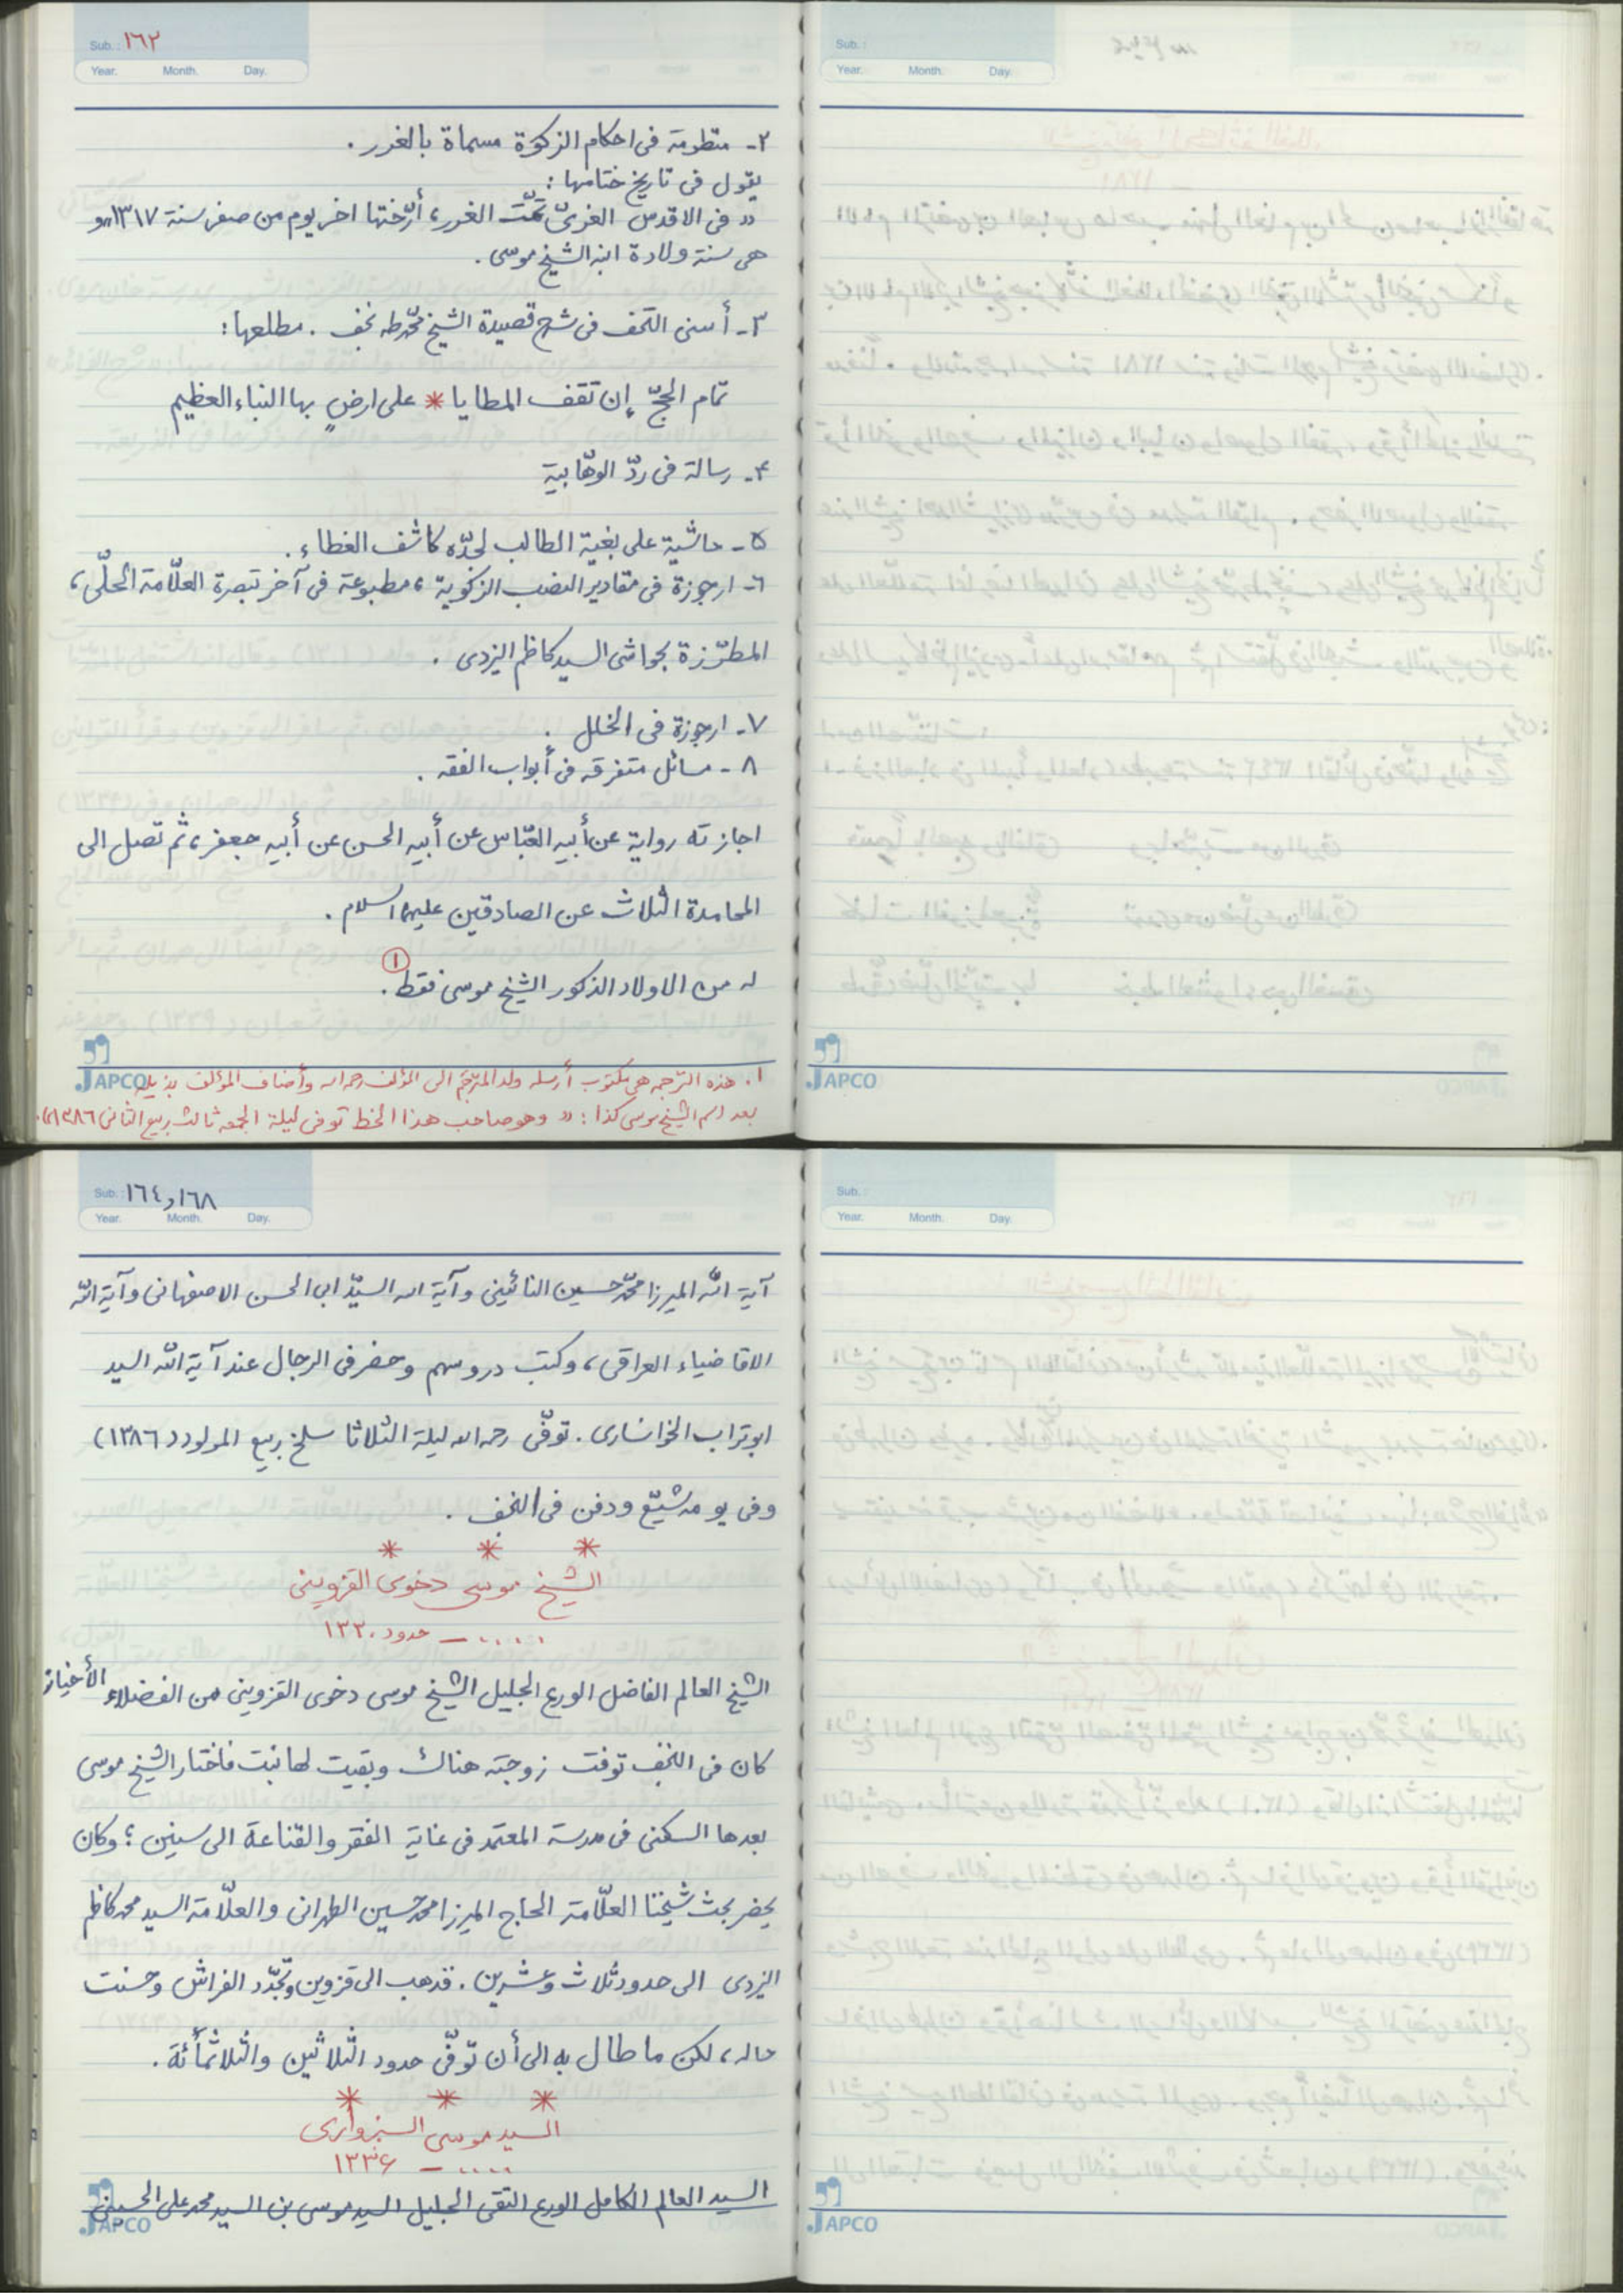 Sub.: ١٦٢
Year. Month. Day.
٢- منظومة فى احكام الزكوة مسماة بالغرر .
يقول فى تاريخ ختامها :
« فى الاقدس الغرىّ تمّت الغرر ، أرّختها اخر يوم من صفر سنة ١٣١٧ » و
هى سنة ولادة ابنه الشيخ موسى .
٣- أسنى التحف فى شرح قصيدة الشيخ محمّد طه نجف . مطلعها :
تمام الحجّ إن تقف المطايا * على ارضٍ بها النباء العظيم
۴- رسالة فى ردّ الوهّابية
۵- حاشية على بغية الطالب لجدّه كاشف الغطاء .
٦- ارجوزة فى مقادير النصب الزكوية ، مطبوعة فى آخر تبصرة العلّامة الحلّى ،
المطرّزة بحواشى السيد كاظم اليزدى .
٧- ارجوزة فى الخلل .
٨- مسائل متفرقه فى أبواب الفقه .
اجازته رواية عن أبيه العبّاس عن أبيه الحسن عن أبيه جعفر ، ثم تصل الى
المحامدة الثلاث عن الصادقين عليهم السلام .
له من الاولاد الذكور الشيخ موسى فقط . ①
JAPCO
١. هذه الترجمه هى مكتوب أرسله ولد المترجَم الى المؤلف رحمه الله وأضاف المؤلف بذيله
بعد اسم الشيخ موسى كذا : « وهو صاحب هذا الخط توفى ليلة الجمعه ثالث ربيع الثانى ١٣٨٦ ».
Sub.:
Year. Month. Day.
JAPCO
Sub.: ١٦٨ و ١٦٤
Year. Month. Day.
آية الله الميرزا محمّد حسين النائينى وآية الله السيّد ابى الحسن الاصفهانى وآية الله
الاقا ضياء العراقى ، وكتب دروسهم وحضر فى الرجال عند آية الله السيد
ابو تراب الخوانسارى . توفّى رحمه الله ليلة الثلاثا سلخ ربيع المولود (١٣٨٦)
وفى يومه شيّع ودفن فى النجف .
* * *
الشيخ موسى دخوى القزوينى
..... – حدود ١٣٣٠
الشيخ العالم الفاضل الورع الجليل الشيخ موسى دخوى القزوينى من الفضلاء الأخيار
كان فى النجف توفت زوجته هناك وبقيت لها بنت فاختار الشيخ موسى
بعدها السكنى فى مدرسة المعتمد فى غاية الفقر والقناعة الى سنين ؛ وكان
يحضر بحث شيخنا العلّامة الحاج الميرزا محمد حسين الطهرانى والعلّامة السيد محمد كاظم
اليزدى الى حدود ثلاث وعشرين . فذهب الى قزوين وتجدّد الفراش وحسنت
حاله ، لكن ما طال به الى أن توفّى حدود الثلاثين والثلاثمأئة .
* * *
السيد موسى السبزوارى
..... – ١٣٣۶
السيد العالم الكامل الورع التقى الجليل السيد موسى بن السيد محمد على الحسينى
JAPCO
Sub.:
Year. Month. Day.
JAPCO